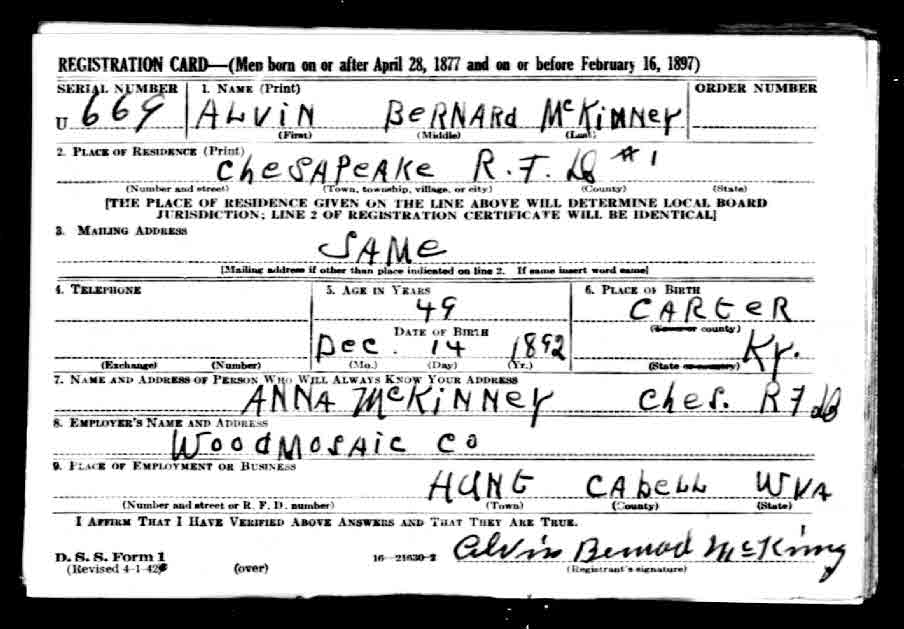 REGISTRATION CARD—(Men born on or after April 28, 1877 and on or before February 16, 1897)
SERIAL NUMBER 1. NAME (Print) ORDER NUMBER
U 669 ALViN BeRNARd McKiNNey
(First) (Middle) (Last)
2. PLACE OF RESIDENCE (Print)
CheSAPeAKe R.F.D #1
(Number and street) (Town, township, village, or city) (County) (State)
[THE PLACE OF RESIDENCE GIVEN ON THE LINE ABOVE WILL DETERMINE LOCAL BOARD
JURISDICTION; LINE 2 OF REGISTRATION CERTIFICATE WILL BE IDENTICAL]
3. MAILING ADDRESS
SAMe
[Mailing address if other than place indicated on line 2. If same insert word same]
4. TELEPHONE 5. AGE IN YEARS 6. PLACE OF BIRTH
49 CARteR
DATE OF BIRTH (Town or county)
Dec. 14 1892 Ky.
(Exchange) (Number) (Mo.) (Day) (Yr.) (State or country)
7. NAME AND ADDRESS OF PERSON WHO WILL ALWAYS KNOW YOUR ADDRESS
ANNA McKiNNey Ches. RFD
8. EMPLOYER'S NAME AND ADDRESS
WoodMOSAiC Co
9. PLACE OF EMPLOYMENT OR BUSINESS
HUNt CAbeLL WVA
(Number and street or R. F. D. number) (Town) (County) (State)
I AFFIRM THAT I HAVE VERIFIED ABOVE ANSWERS AND THAT THEY ARE TRUE.
D. S. S. Form 1 16—21630-2 Alvin Bernod McKinny
(Revised 4-1-42) (over) (Registrant's signature)